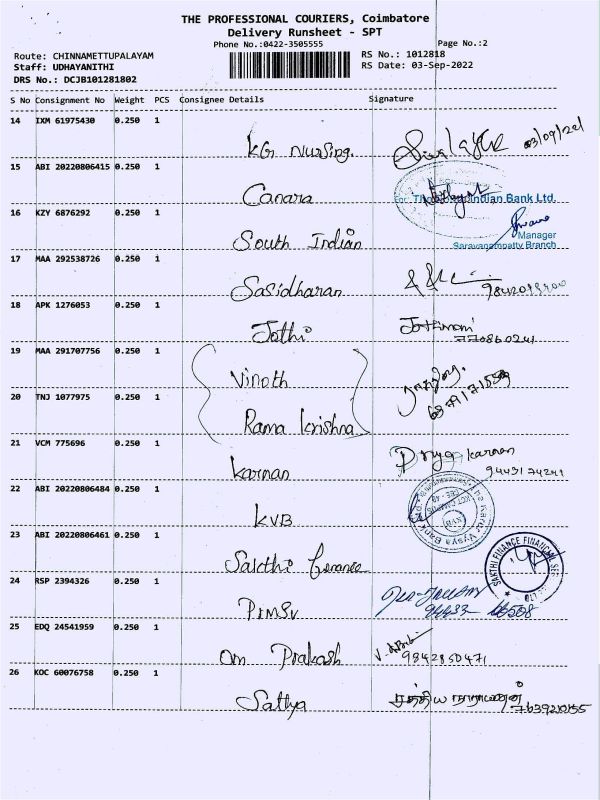 THE PROFESSIONAL COURIERS, Coimbatore
Delivery Runsheet - SPT
Phone No.:0422-3505555
Page No.:2
Route: CHINNAMETTUPALAYAM
RS No.: 1012818
Staff: UDHAYANITHI
RS Date: 03-Sep-2022
DRS No.: DCJB101281802
S No Consignment No Weight PCS Consignee Details Signature
14 IXM 61975430 0.250 1
KG Nursing.
15 ABI 20220806415 0.250 1
Canara
For The South Indian Bank Ltd.
16 KZY 6876292 0.250 1
South Indian
Manager
Saravanampatty Branch
17 MAA 292538726 0.250 1
Sasidharan
18 APK 1276053 0.250 1
Jothi
Jothimani
770860241
19 MAA 291707756 0.250 1
Vinoth
20 TNJ 1077975 0.250 1
Rama Krishna
21 VCM 775696 0.250 1
Karnan
Priya Karnan
22 ABI 20220806484 0.250 1
KVB
The Karur Vysya Bank
23 ABI 20220806461 0.250 1
Sakthi Finance
SAKTHI FINANCE FINANCIAL SER
24 RSP 2394326 0.250 1
25 EDQ 24541959 0.250 1
Om Prakash
9842850471
26 KOC 60076758 0.250 1
Sathya
சத்திய நாராயணன்